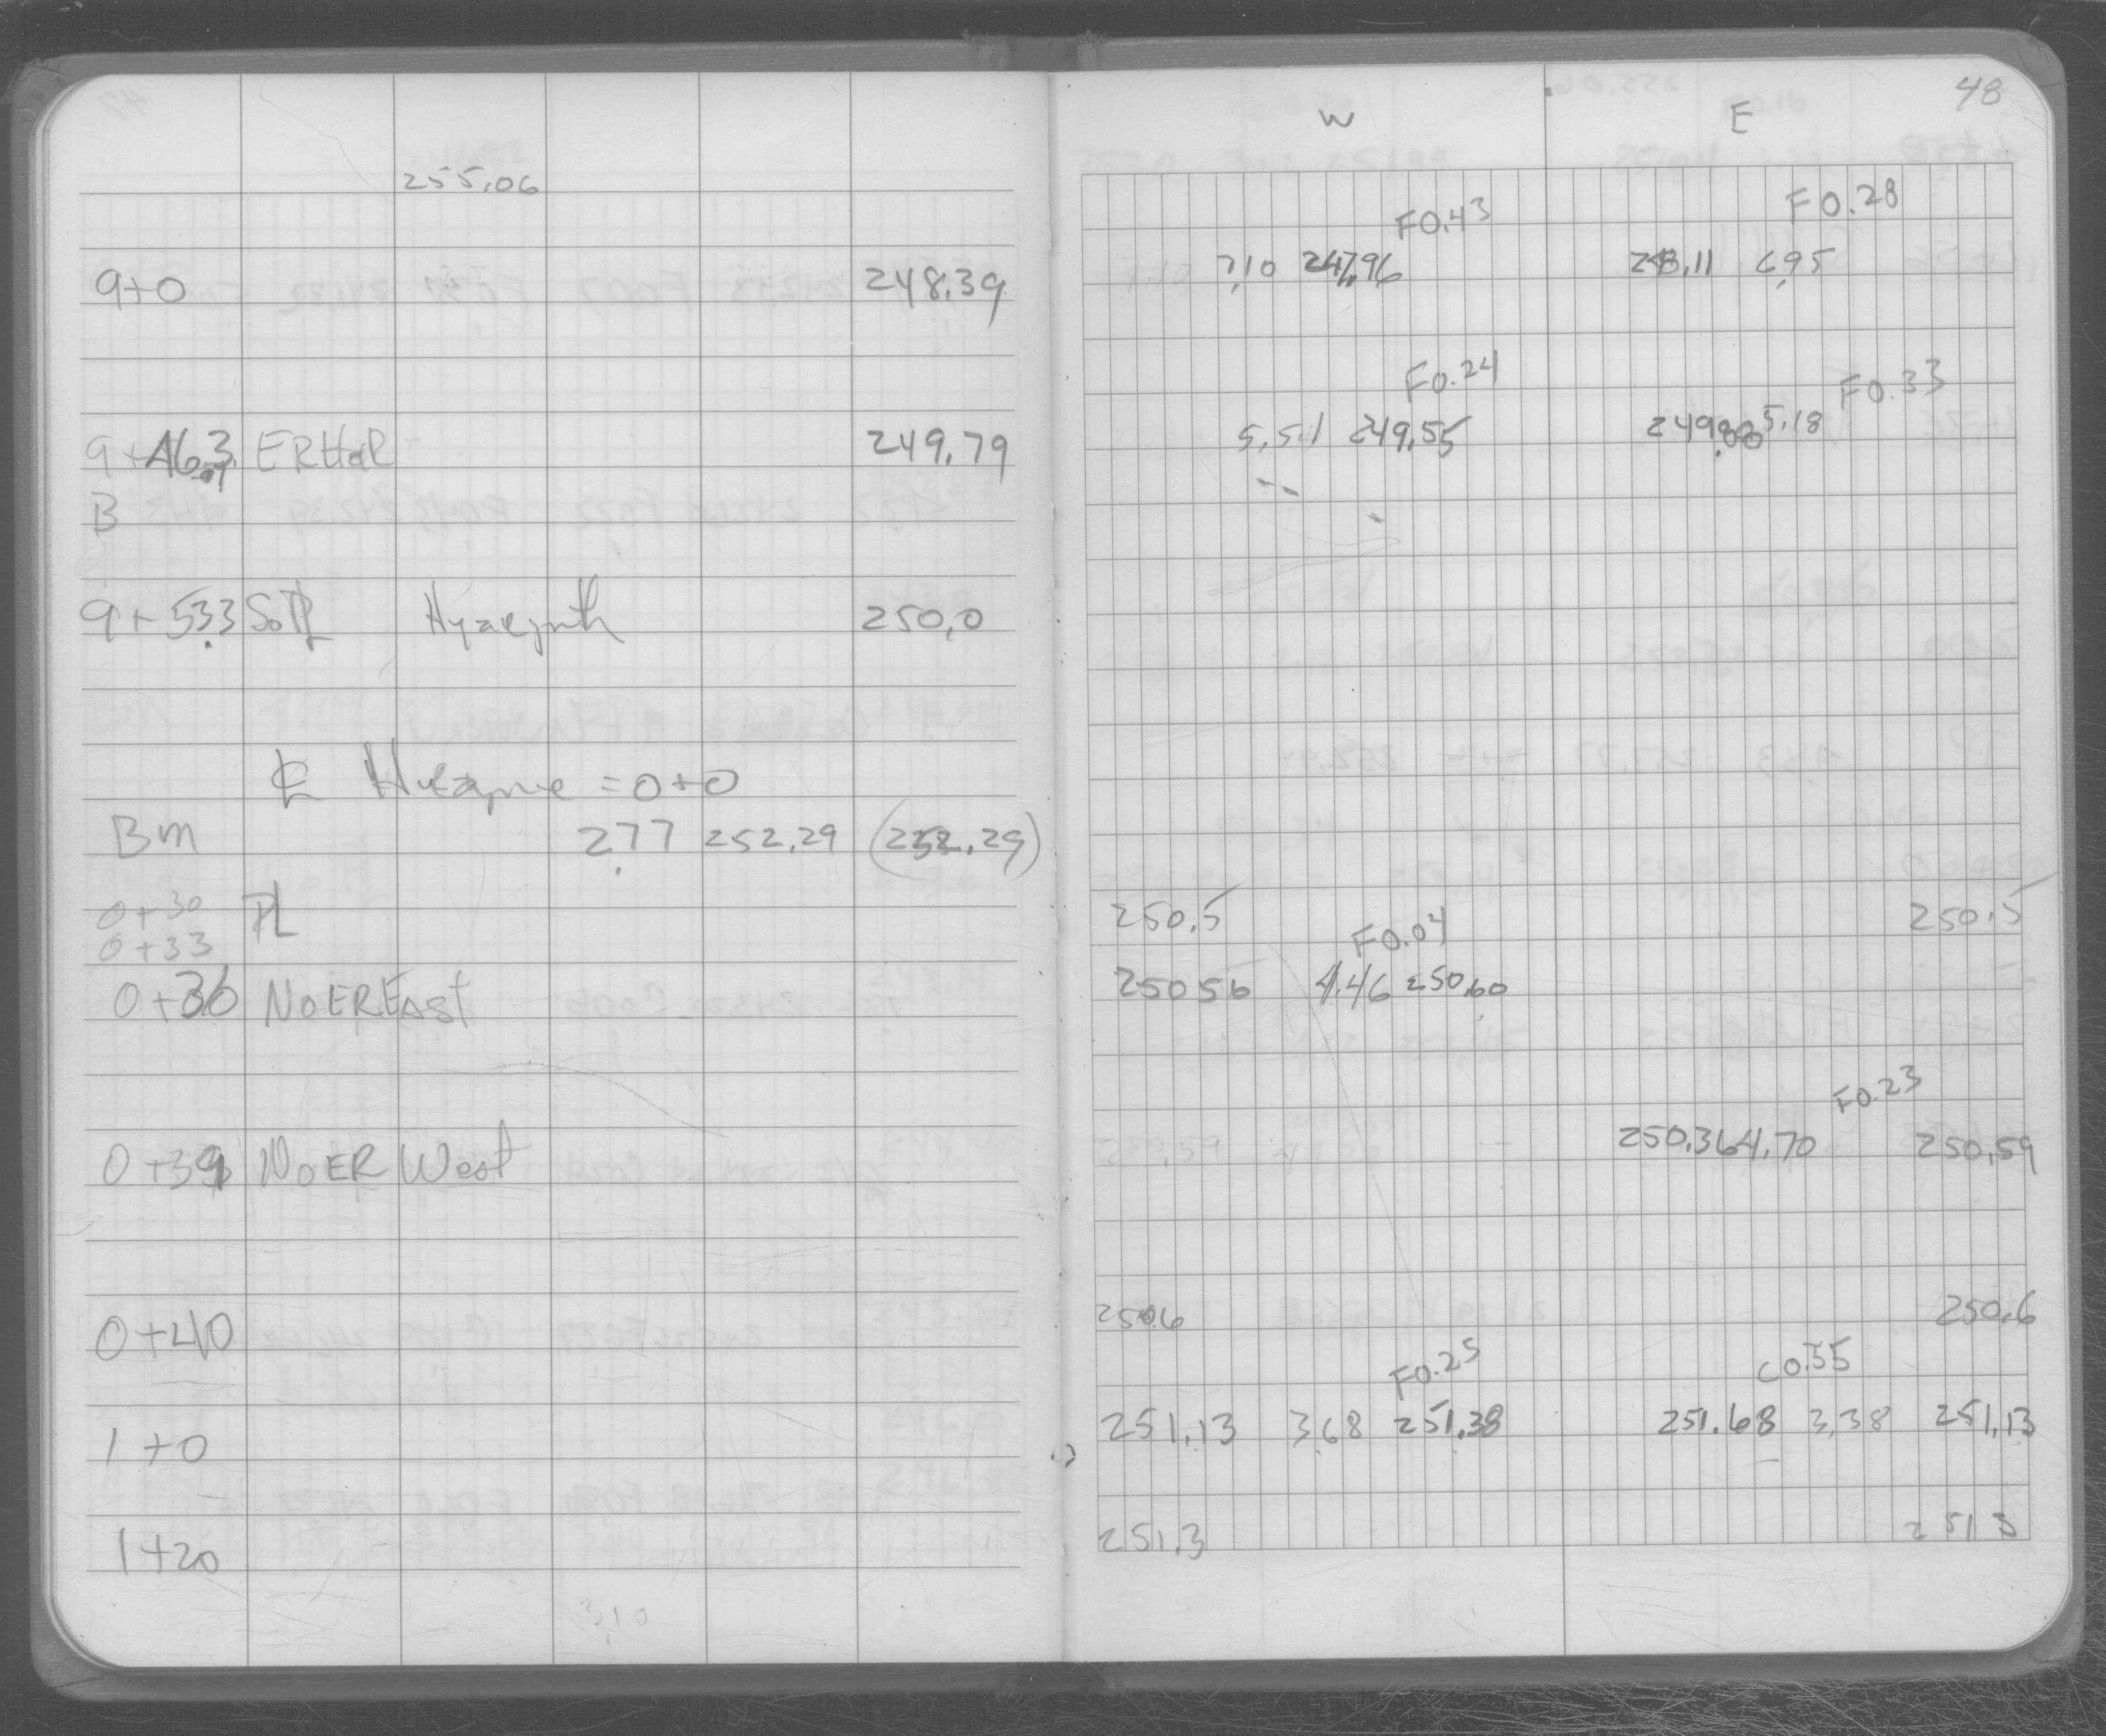 48
W E
255.06
F0.43 F0.28
9+0 248.39 7.10 247.96 248.11 6.95
F0.24 F0.33
9+46.3 ERHdR 249.79 5.51 249.55 5.18
B
9+53.3 So PL 250.0
= 0+0
BM 2.77 252.29 (252.29)
0+30 PL 250.5 250.5
0+33 F0.04
0+36 No ER East 250 56 4.46 250.60
F0.23
0+39 No ER West 250.36 4.70 250.59
0+40 250.6 250.6
F0.25 C0.55
1+0 251.13 3.68 251.38 251.68 3.38 251.13
1+20 251.3 251 3
3.10